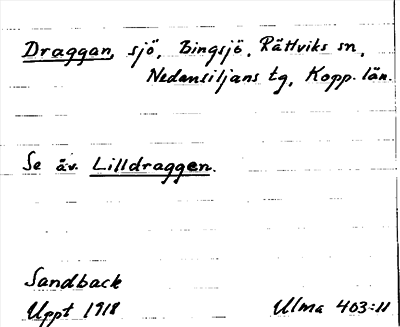 Draggan, sjö, Bingsjö, Rättviks sn,
Nedansiljans tg, Kopp. län.
Se äv. Lilldraggen.
Sandback
Uppt 1918
Ulma 403:11